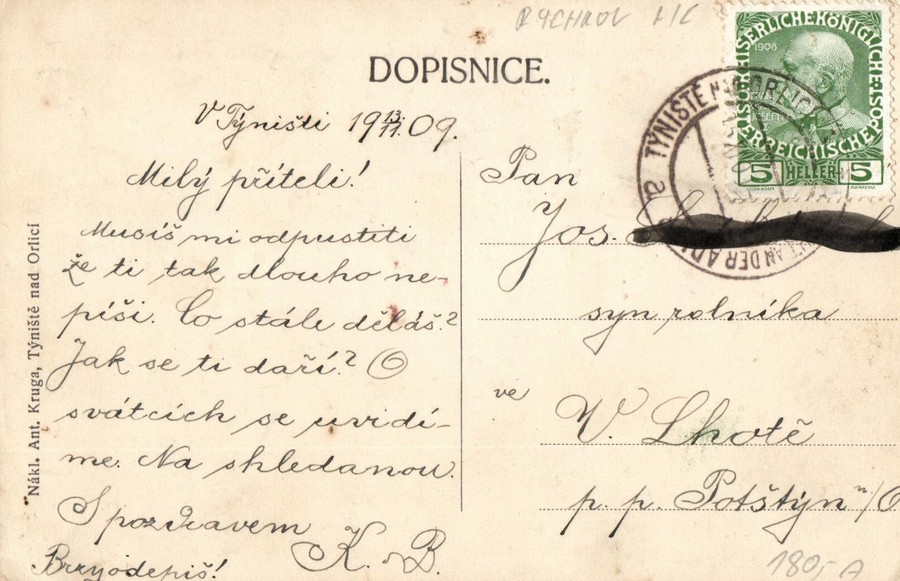 RYCHNOV
DOPISNICE.
V Týništi 19 13/11 09.
Milý příteli!
Musíš mi odpustiti
že ti tak dlouho ne-
píši. Co stále děláš?
Jak se ti daří? O
svátcích se uvidí-
me. Na shledanou
S pozdravem
K. B.
Brzy odepiš!
Pan
Jos.
syn rolníka
ve
V. Lhotě
p. p. Potštýn n/O
180,- A
Nákl. Ant. Kruga, Týniště nad Orlicí
KAISERLICHE KÖNIGLICHE ÖSTERREICHISCHE POST
1908
5 HELLER 5
TÝNIŠTĚ NAD ORLICÍ
ADLER
a